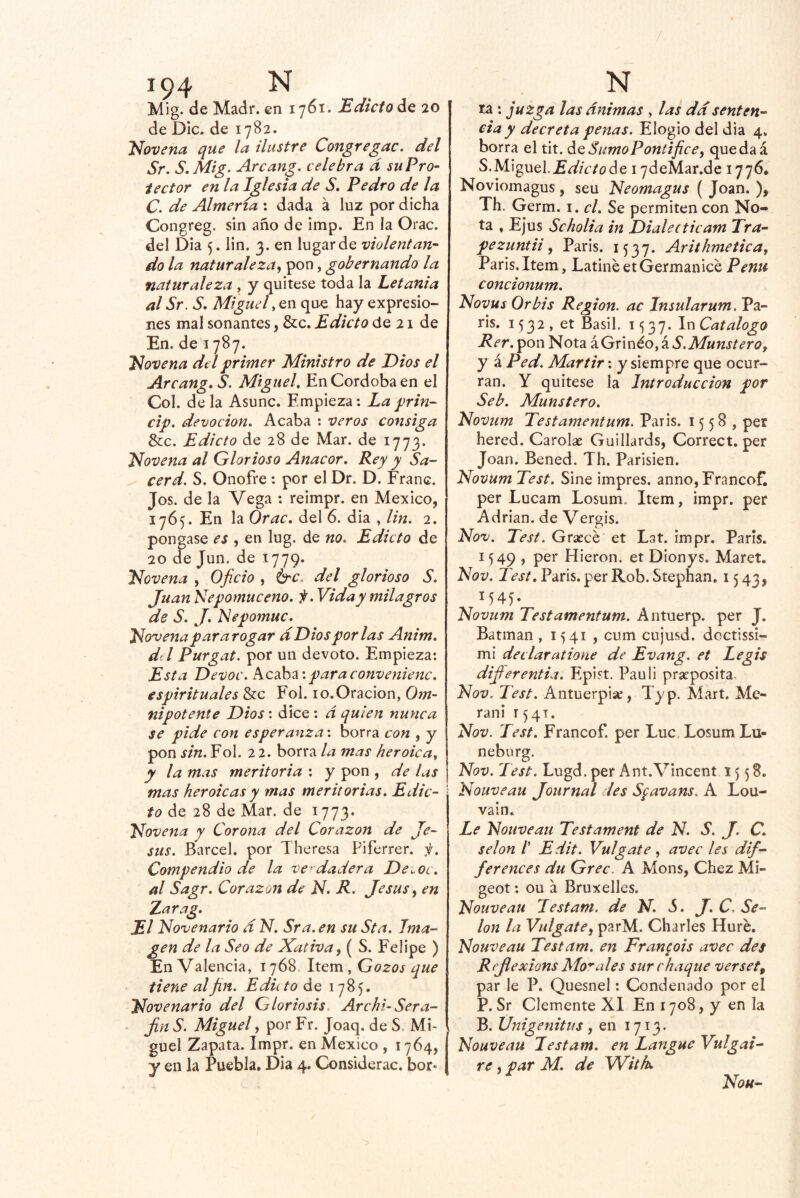 194 N
Mig. de Madr. en 1761. Edicto de 20
de Dic. de 1782.
Novena que la ilustre Congregac. del
Sr. S. Mig. Arcang. celebra á su Pro-
tector en la Iglesia de S. Pedro de la
C. de Almería : dada à luz por dicha
Congreg. sin año de imp. En la Orac.
del Dia 5. lin. 3. en lugar de violentan-
do la naturaleza, pon, gobernando la
naturaleza , y quitese toda la Letania
al Sr. S. Miguel, en que hay expresio-
nes mal sonantes, &c. Edicto de 21 de
En. de 1787.
Novena del primer Ministro de Dios el
Arcang. S. Miguel. En Cordoba en el
Col. de la Asunc. Empieza: La prin-
cip. devocion. Acaba : veros consiga
&c. Edicto de 28 de Mar. de 1773.
Novena al Glorioso Anacor. Rey y Sa-
cerd. S. Onofre : por el Dr. D. Franc.
Jos. de la Vega : reimpr. en Mexico,
1765. En la Orac. del 6. dia , lin. 2.
pongase es , en lug. de no. Edicto de
20 de Jun. de 1779.
Novena , Oficio , &c. del glorioso S.
Juan Nepomuceno. ꝟ. Vida y milagros
de S. J. Nepomuc.
Novena para rogar á Dios por las Anim.
del Purgat. por un devoto. Empieza:
Esta Devoc. Acaba: para convenienc.
espirituales &c Fol. 10. Oracion, Om-
nipotente Dios : dice : á quien nunca
se pide con esperanza: borra con , y
pon sin. Fol. 22. borra la mas heroica,
y la mas meritoria : y pon , de las
mas heroicas y mas meritorias. Edic-
to de 28 de Mar. de 1773.
Novena y Corona del Corazon de Je-
sus. Barcel. por Theresa Piferrer. ꝟ.
Compendio de la verdadera Devoc.
al Sagr. Corazon de N. R. Jesus, en
Zarag.
El Novenario á N. Sra. en su Sta. Ima-
gen de la Seo de Xativa, ( S. Felipe )
En Valencia, 1768. Item , Gozos que
tiene al fin. Edicto de 1785.
Novenario del Gloriosis. Archi-Sera-
fin S. Miguel, por Fr. Joaq. de S. Mi-
guel Zapata. Impr. en Mexico , 1764,
y en la Puebla. Dia 4. Considerac. bor-
N
ra : juzga las ánimas , las dá senten-
cia y decreta penas. Elogio del dia 4.
borra el tit. de Sumo Pontifice, queda á
S. Miguel. Edicto de 17 de Mar. de 1776.
Noviomagus, seu Neomagus ( Joan. ),
Th. Germ. 1. cl. Se permiten con No-
ta , Ejus Scholia in Dialecticam Tra-
pezuntii, Paris. 1537. Arithmetica,
Paris. Item, Latinè et Germanicè Penu
concionum.
Novus Orbis Region. ac Insularum. Pa-
ris. 1532, et Basil. 1537. In Catalogo
Rer. pon Nota á Grinéo, á S. Munstero,
y á Ped. Martir : y siempre que ocur-
ran. Y quitese la Introduccion por
Seb. Munstero.
Novum Testamentum. Paris. 1558 , per
hered. Carolæ Guillards, Correct. per
Joan. Bened. Th. Parisien.
Novum Test. Sine impres. anno, Francof.
per Lucam Losum. Item, impr. per
Adrian. de Vergis.
Nov. Test. Græcè et Lat. impr. Paris.
1549 , per Hieron. et Dionys. Maret.
Nov. Test. Paris. per Rob. Stephan. 1543,
1545.
Novum Testamentum. Antuerp. per J.
Batman , 1541 , cum cujusd. doctissi-
mi declaratione de Evang. et Legis
differentia. Epist. Pauli præposita.
Nov. Test. Antuerpiæ, Typ. Mart. Me-
rani 1541.
Nov. Test. Francof. per Luc. Losum Lu-
neburg.
Nov. Test. Lugd. per Ant. Vincent 1558.
Nouveau Journal des Sçavans. A Lou-
vain.
Le Nouveau Testament de N. S. J. C.
selon l' Edit. Vulgate , avec les dif-
ferences du Grec. A Mons, Chez Mi-
geot : ou à Bruxelles.
Nouveau Testam. de N. S. J. C. Se-
lon la Vulgate, par M. Charles Hurè.
Nouveau Testam. en François avec des
Reflexions Morales sur chaque verset,
par le P. Quesnel : Condenado por el
P. Sr Clemente XI En 1708, y en la
B. Unigenitus , en 1713.
Nouveau Testam. en Langue Vulgai-
re, par M. de With.
Nou-